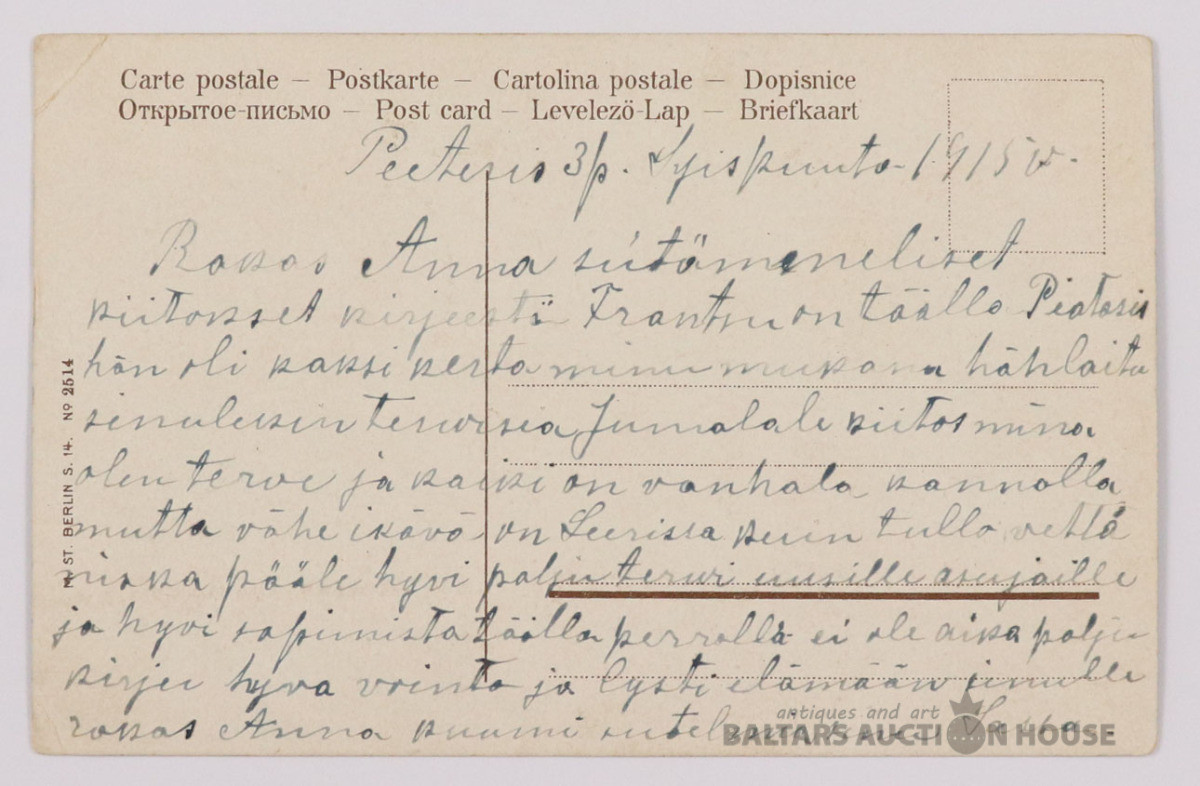 Carte postale – Postkarte – Cartolina postale – Dopisnice
Открытое-письмо – Post card – Levelezö-Lap – Briefkaart
Peeteris 3 p. Syispuuta 1915 v.
Rakas Anna
kiitokset kirjeestä Frantsu on täälla Pietaris
hän oli kaksi kerta minu mukana
terveisea Jumalale kiitos mina
olen terve ja kaiki on vanhala kannalla
mutta vähe ikävä on kuin tullo vettä
niska pääle hyvi palju tervei uusille asujaille
ja hyvi sopimista täälla perrolla ei ole aika palju
kirjei hyva vointo ja lysti elämään sinulle
rakas Anna kuumi
No ST. BERLIN S. 14. No 2514
antiques and art
BALTARS AUCTION HOUSE